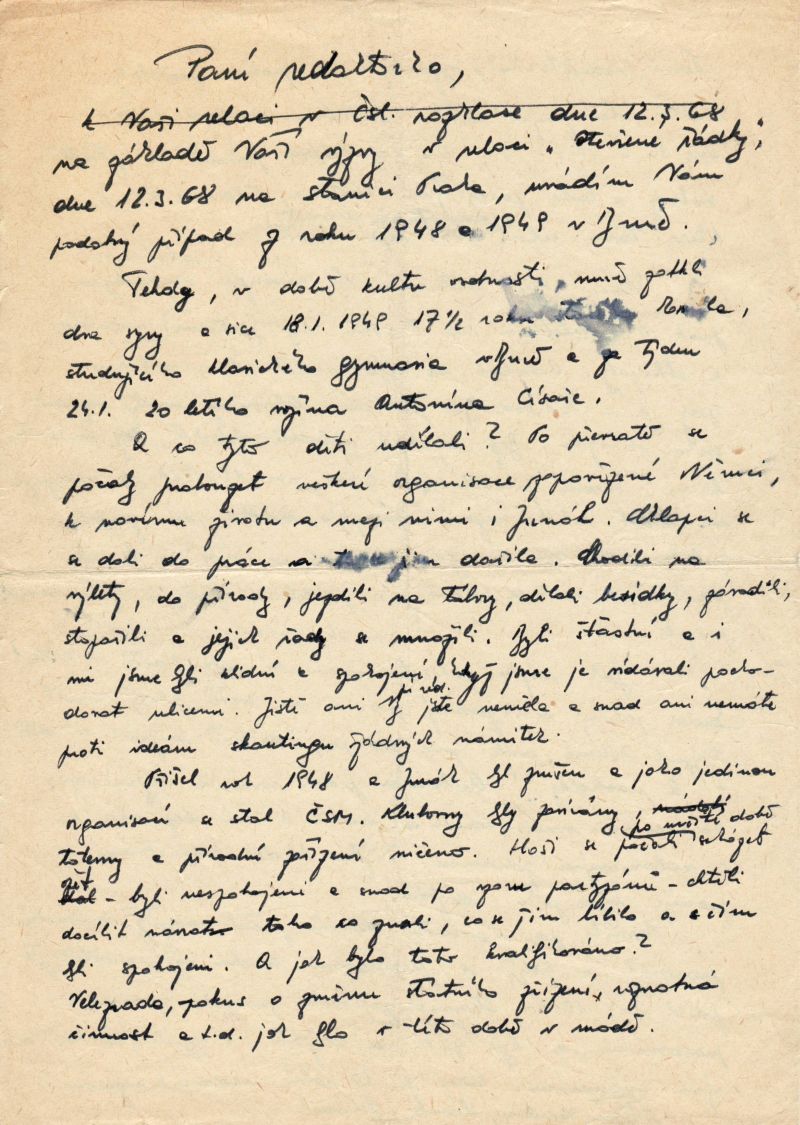 Paní redaktorko,
k Vaší relaci v Čsl. rozhlase dne 12.3.68
na základě Vaší výzvy v relaci "Otevřené řádky",
dne 12.3.68 na stanici Praha, uvádím Vám
podobný případ z roku 1948 a 1949 v Brně.
Tehdy, v době kultu osobnosti, mně zatkli
dva syny a sice 18.1.1949 17½
studujícího klasického gymnasia v Brně a za týden
24.1. 20 letého Antonína Císaře.
A co tyto děti udělali? Po převratě se
počaly probouzet veškeré organisace zapovězené Němci,
k novému životu a mezi nimi i Junák. Chlapci se
se dali do práce a jim dařila. Chodili na
výlety, do přírody, jezdili na tábory, dělali besídky, závodili,
stopařili a jejich řady se množili. Byli šťastní a i
mi jsme byli klidní a spokojení když jsme je vídávali pocho-
dovat ulicemi. Jistě ani Vy jste neměla a snad ani nemáte
proti ideám skautingu žádných námitek.
Přišel rok 1948 a Junák byl zrušen a jako jedinou
organisací se stal ČSM. Klubovny byly zavírány,
totemy a přírodní zařízení ničeno. Hoši se po určité době počali scházet
zpět - byli nespokojeni a snad po vzoru partyzánů - chtěli
docílit návrat toho co znali, co se jim líbilo a s čím
byli spokojeni. A jak bylo toto kvalifikováno?
Velezrada, pokus o změnu státního zřízení,
činnost a t.d. jak bylo v této době v módě.